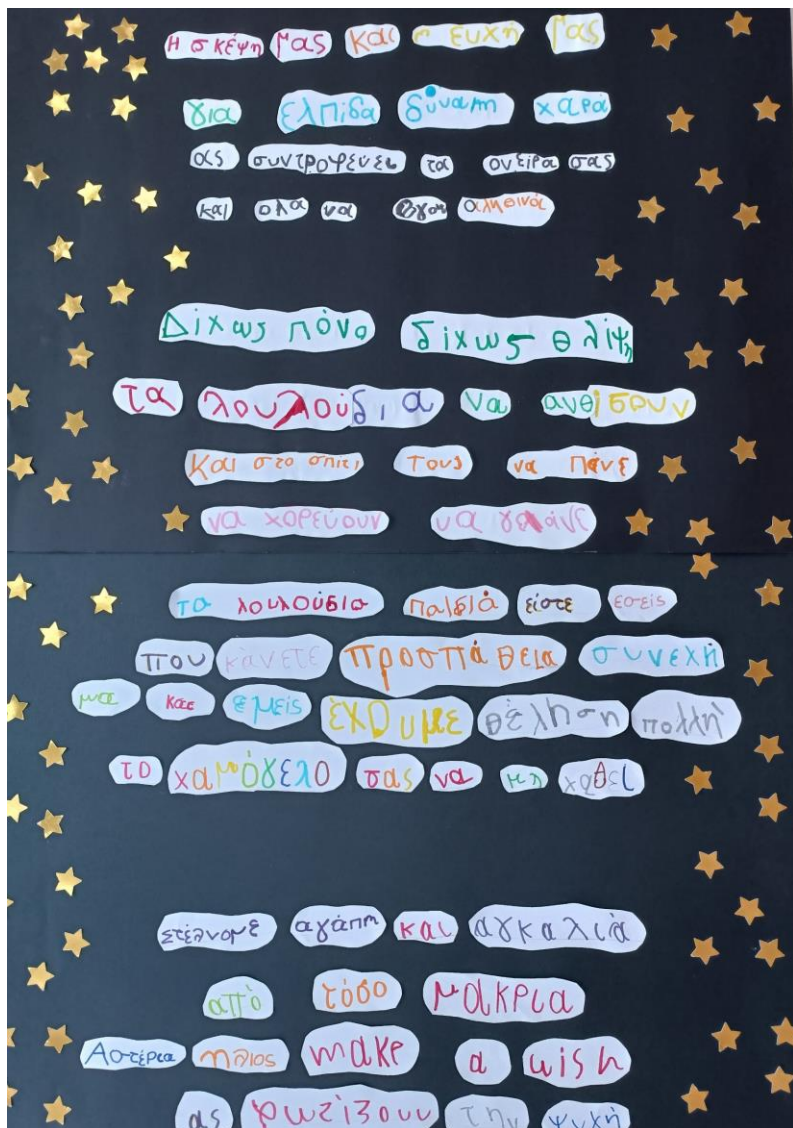 Η σκέψη μας και η ευχή μας
για ελπίδα δύναμη χαρά
ας συντροφεύει τα ονειρα σας
και ολα να βγουν αληθινά
Δίχως πόνο δίχως θλίψη
τα λουλούδια να ανθίσουν
Και στο σπίτι τους να πάνε
να χορεύουν να γελάνε
τα λουλούδια παιδιά είστε εσείς
που κάνετε προσπάθεια συνεχή
μα και εμείς έχουμε θέληση πολλή
το χαμόγελο σας να μη χαθεί
στέλνομε αγάπη και αγκαλιά
από τόσο μακρια
Αστέρια ήλιος make a wish
ας φωτίζουν την ψυχή